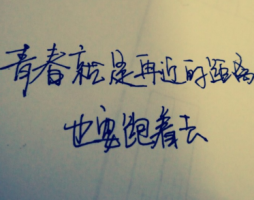 青春就是再近的距离
也要跑着去